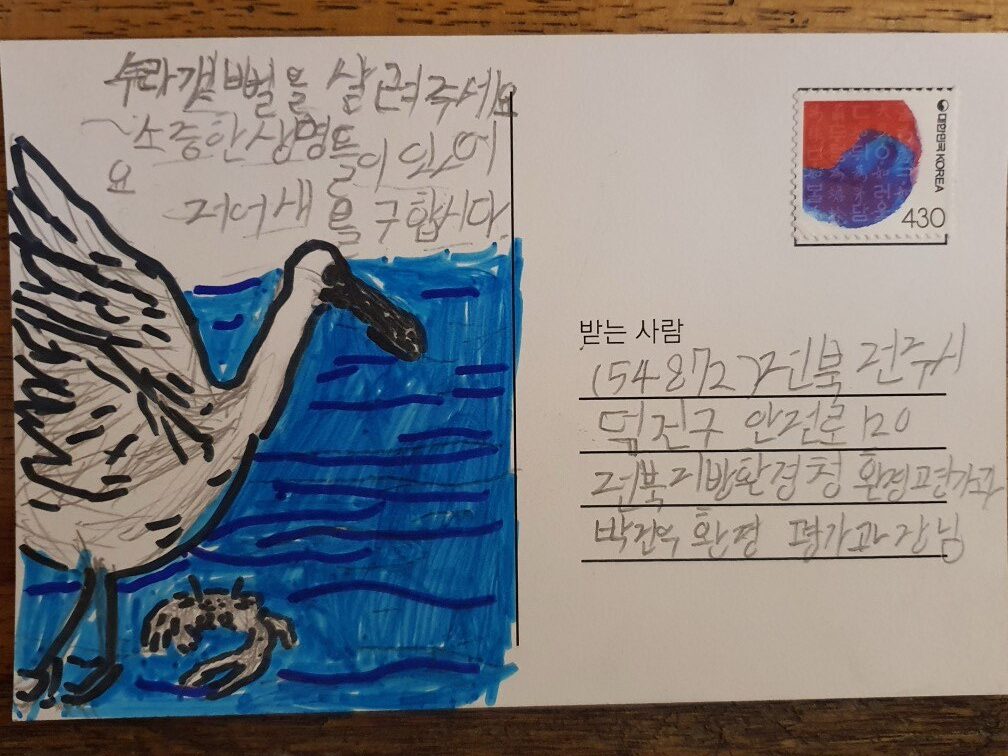 수라갯뻘을 살려주세요
~소중한 생명들이 있어
요
저어새를 구합시다.
대한민국 KOREA
430
받는 사람
(54872)전북 전주시
덕진구 안전로 120
전북지방환경청 환경평가과
박건욱 환경 평가과장님